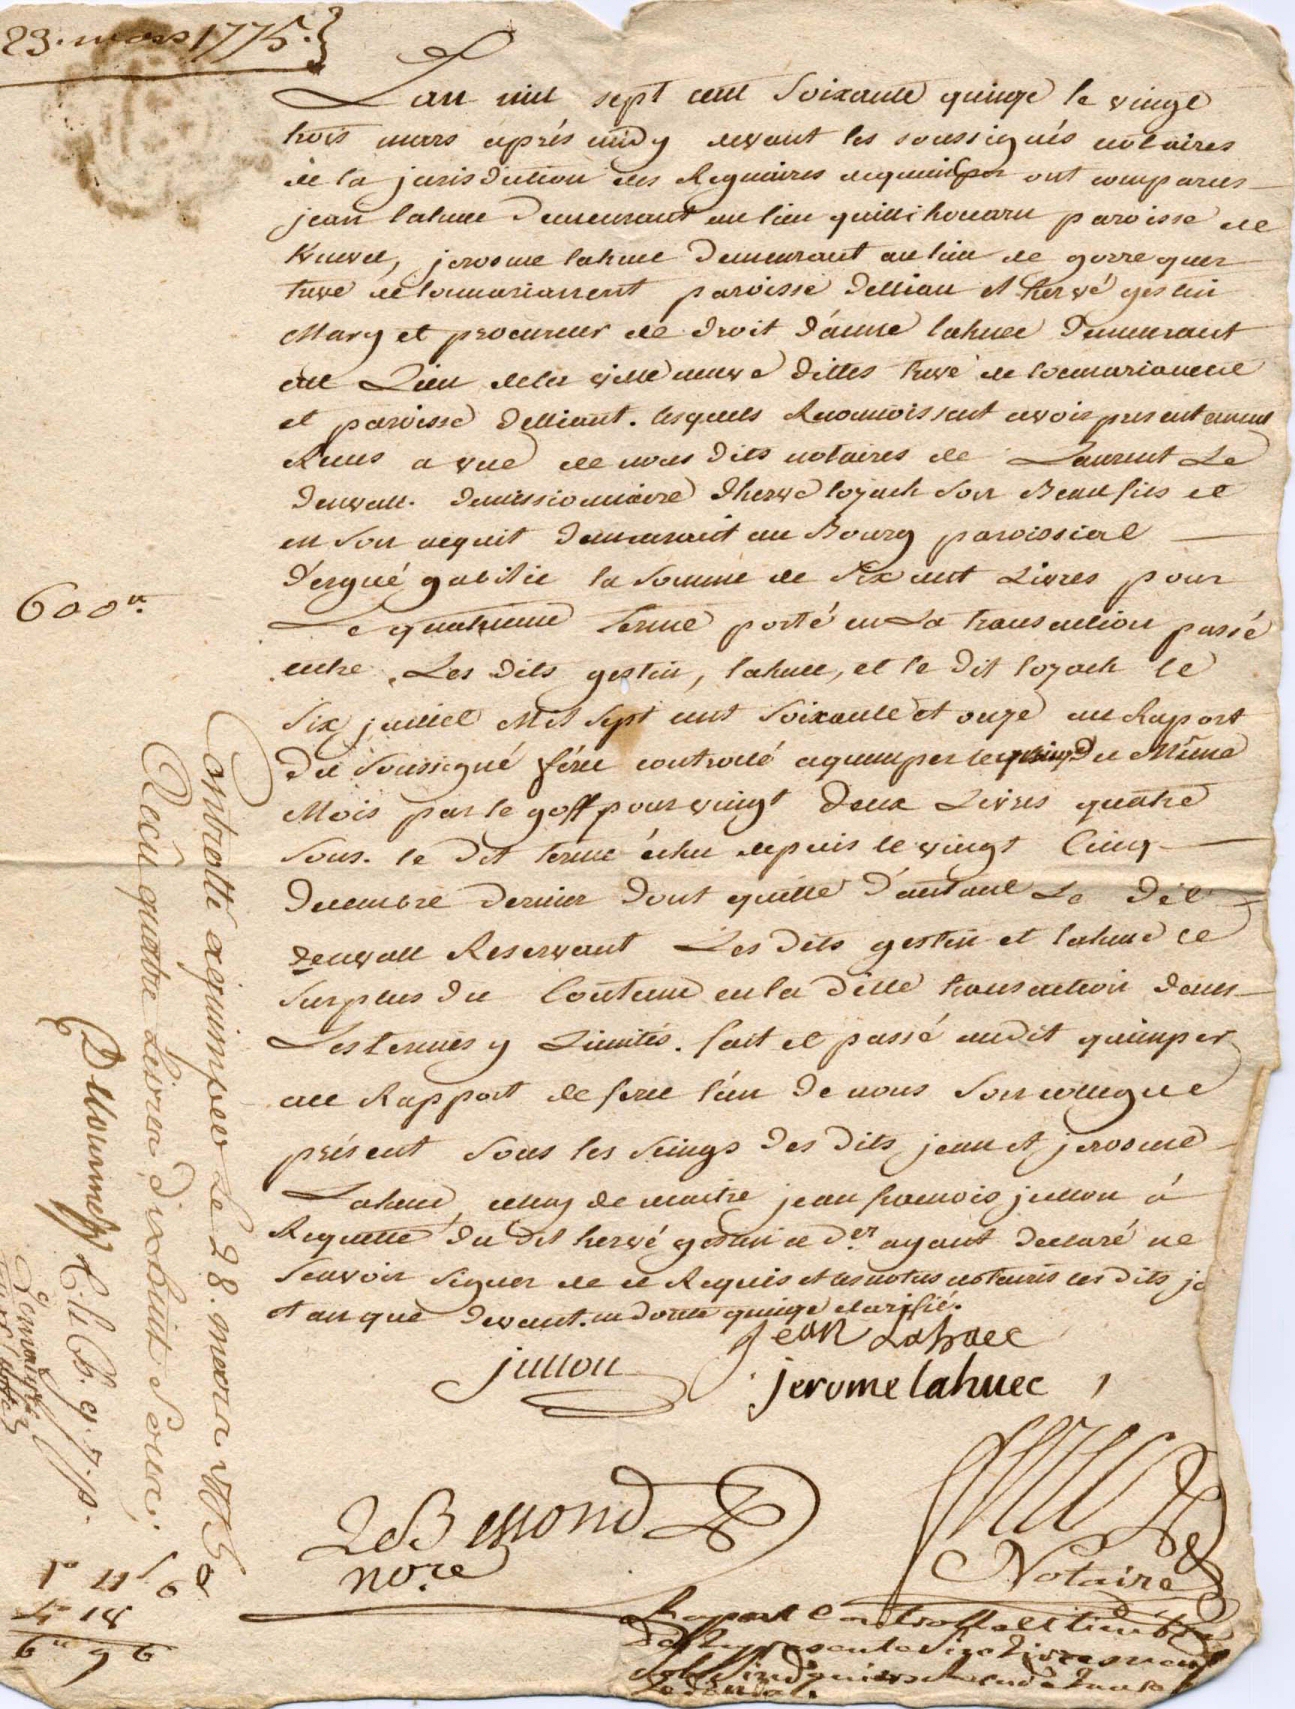 23. mars 1775.
L'an mil sept cent soixante quinze le vingt
trois mars après midy devant les soussignés notaires
de la jurisdiction des Reguaires de quimper ont comparus
jean lahuec demeurant au lieu quillihouarn paroisse de
jerosme lahuec demeurant au lieu de gorrequer
treve de locmarianeut paroisse delliau et hervé gestin
Mary et procureur de droit d'anne lahuec demeurant
au Lieu de la villeneuve dittes treve de locmarianeut
et paroisse delliant. lesquels Reconnoissent avoir presentement
Recus a vue de nous dits notaires de Laurent Le
denvall. demissionnaire d'herve lozach son Beau fils et
en son acquit demeurant au Bourg paroissial
d'ergué gabéric la somme de six cent Livres pour
600tt.
Le quatrieme terme porté en La transaction passé
entre Les dits gestin, lahuec, et le dit lozach le
six juillet Mil sept cent soixante et onze au Raport
du soussigné féru controllé a quimper le quinze du Même
Mois par le goff pour vingt deux Livres quatre
sous. le dit terme échu depuis le vingt Cinq
decembre dernier dont quitte d'autant Le dit
denvall Reservant Les dits gestin et lahuec le
surplus du Contenu en la ditte transaction dans
Les termes y Limités. fait et passé audit quimper
au Rapport de féru l'un de nous son collegue
présent sous les seings des dits jean et jerosme
Lahuec, celuy de maitre jean francois jullou á
Requette du dit hervé gestin ce der ayant declaré ne
scavoir signer de ce Requis et les notres notaires les dits jo
et an que devant.
jean Lahuec
jullou
jerome lahuec
Le Bescond
nore
Notaire
Controllé a quimper Le 28. mars 1775
Recu quatre Livres dixhuit Sous.